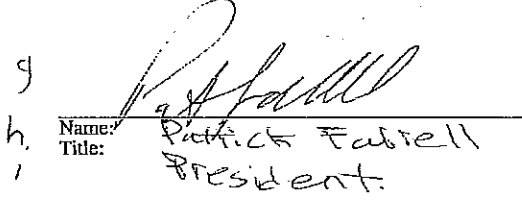 g
h. Name: Patrick Fabiell
, Title: President.